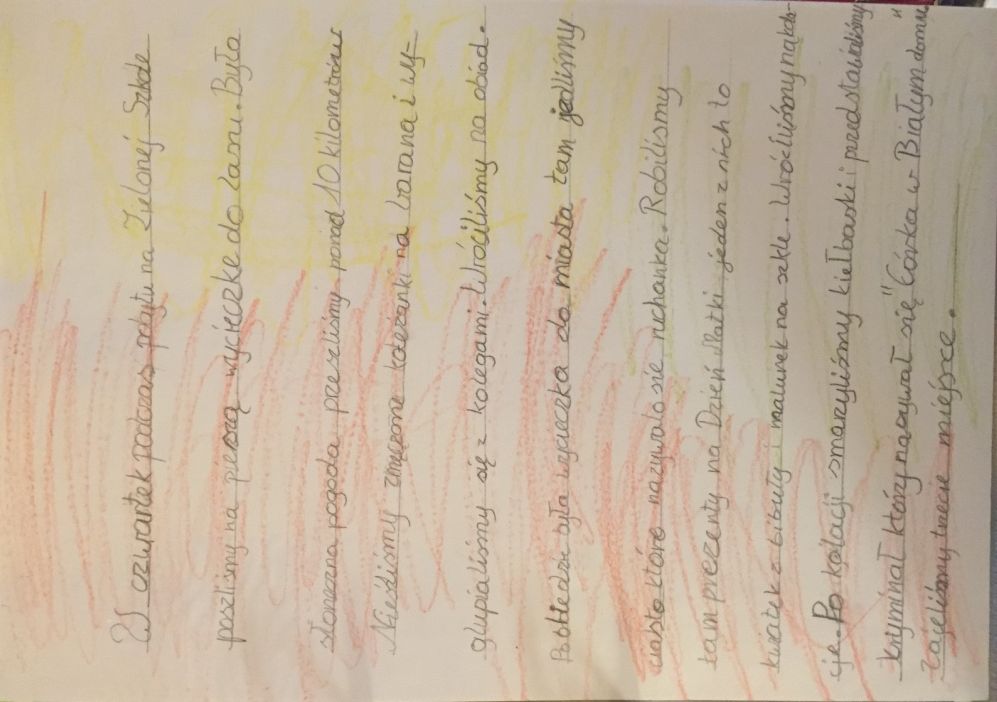 W czwartek podczas pobytu na Zielonej Szkole
poszliśmy na pieszą wycieczkę do lasu. Było
słoneczna pogoda przeszliśmy ponad 10 kilometrów
Nieśliśmy zmęczone koleżanki na barana i wy-
głupialiśmy się z kolegami. Wróciliśmy na obiad.
Po obiedzie była wycieczka do miasta tam jedliśmy
ciasto które nazywało się ruchanka. Robiliśmy
tam prezenty na Dzień Matki jeden z nich to
kwiatek z bibuły i malunek na szkle. Wróciliśmy na kola-
cje. Po kolacji smarzyliśmy kiełbaski i przedstawialiśmy
kryminał który nazywał się "Córka w Białym domu"
zajeliśmy trzecie miejsce.